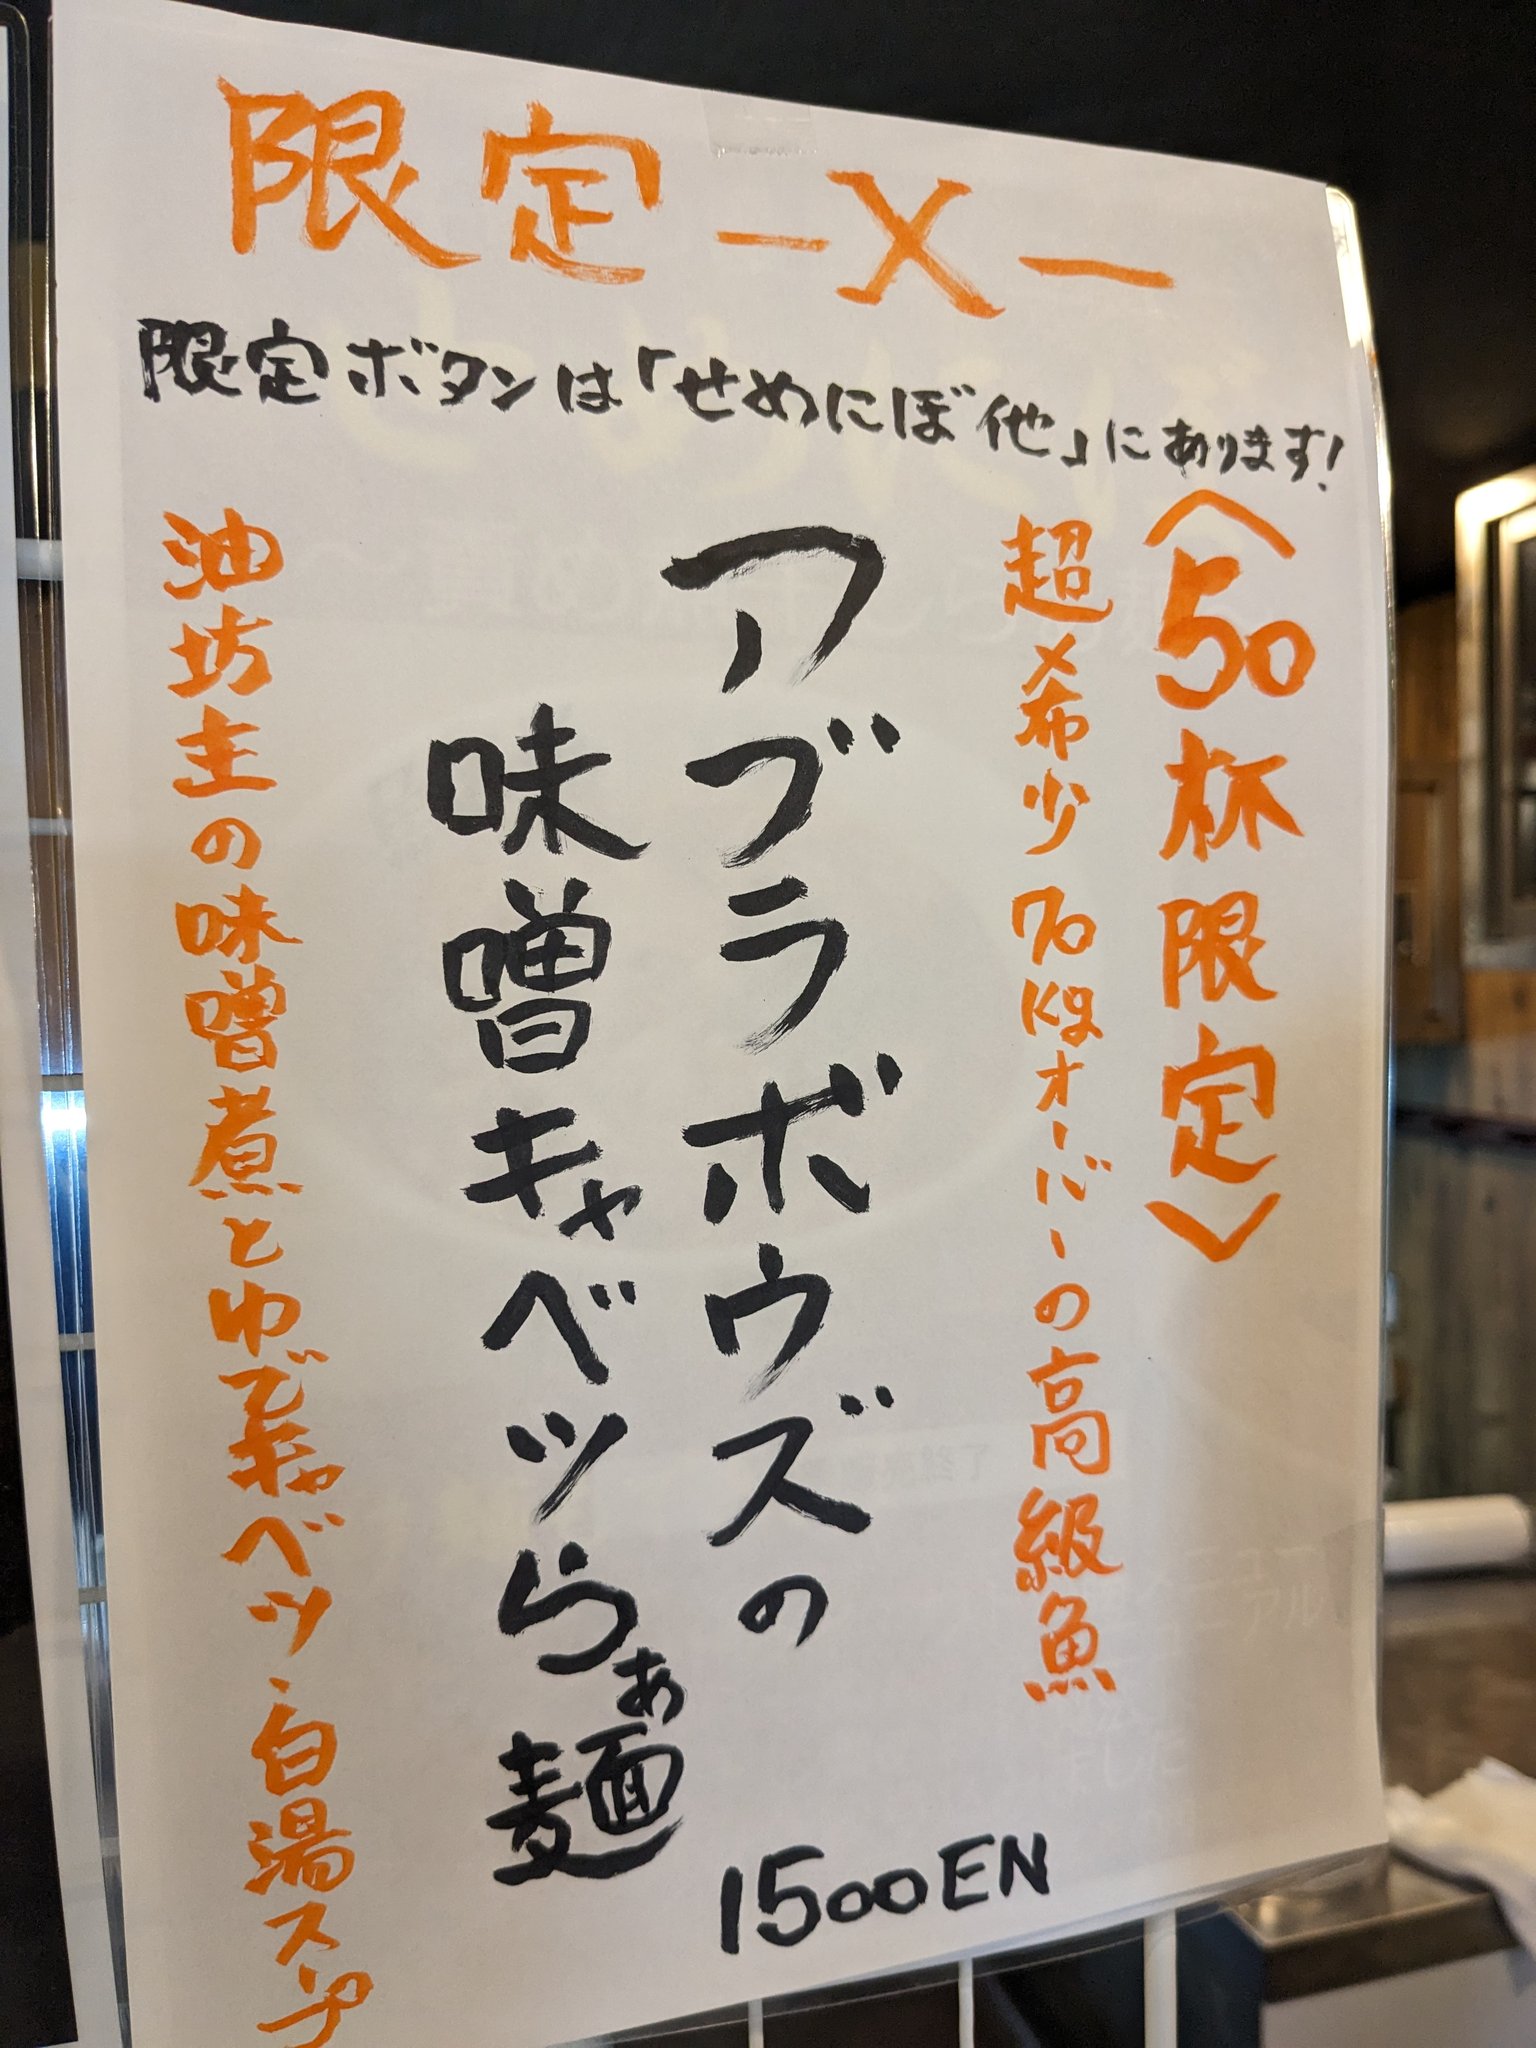 限定-X-
限定ボタンは「せめにぼ他」にあります!
〈50杯限定〉
超希少70kgオーバーの高級魚
アブラボウズの
味噌キャベツらぁ麺
1500EN
油坊主の味噌煮とゆでキャベツ・白湯スープ